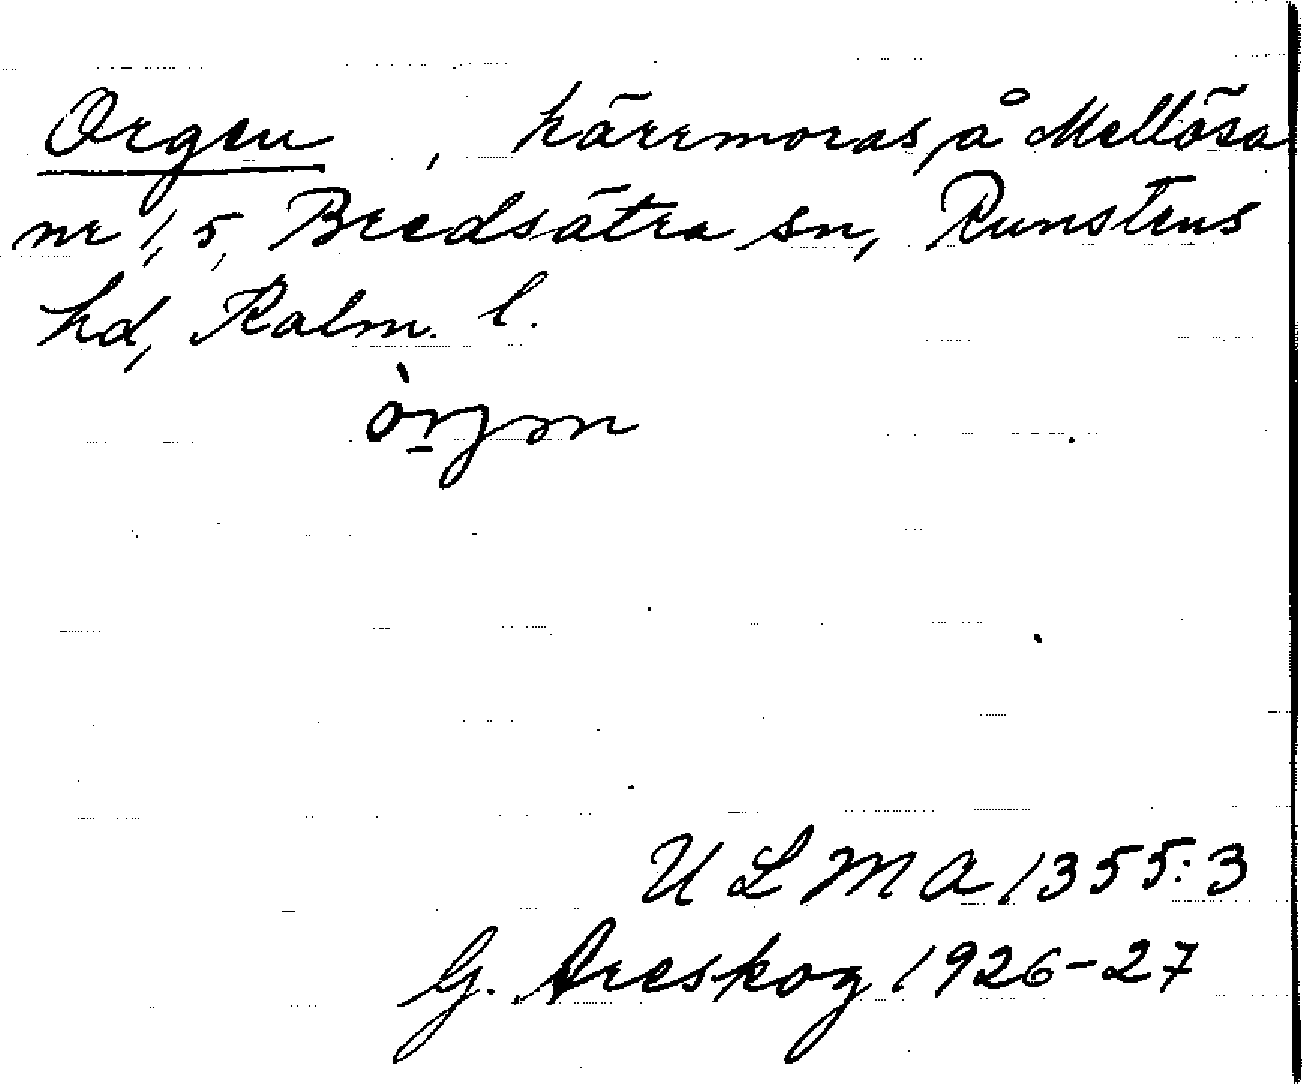 Orgen, kärrmoras å Mellösa
nr 1, 5, Bredsätra sn, Runstens
hd, Kalm. l.
òrgən
ULMA 1355:3
G. Areskog 1926-27